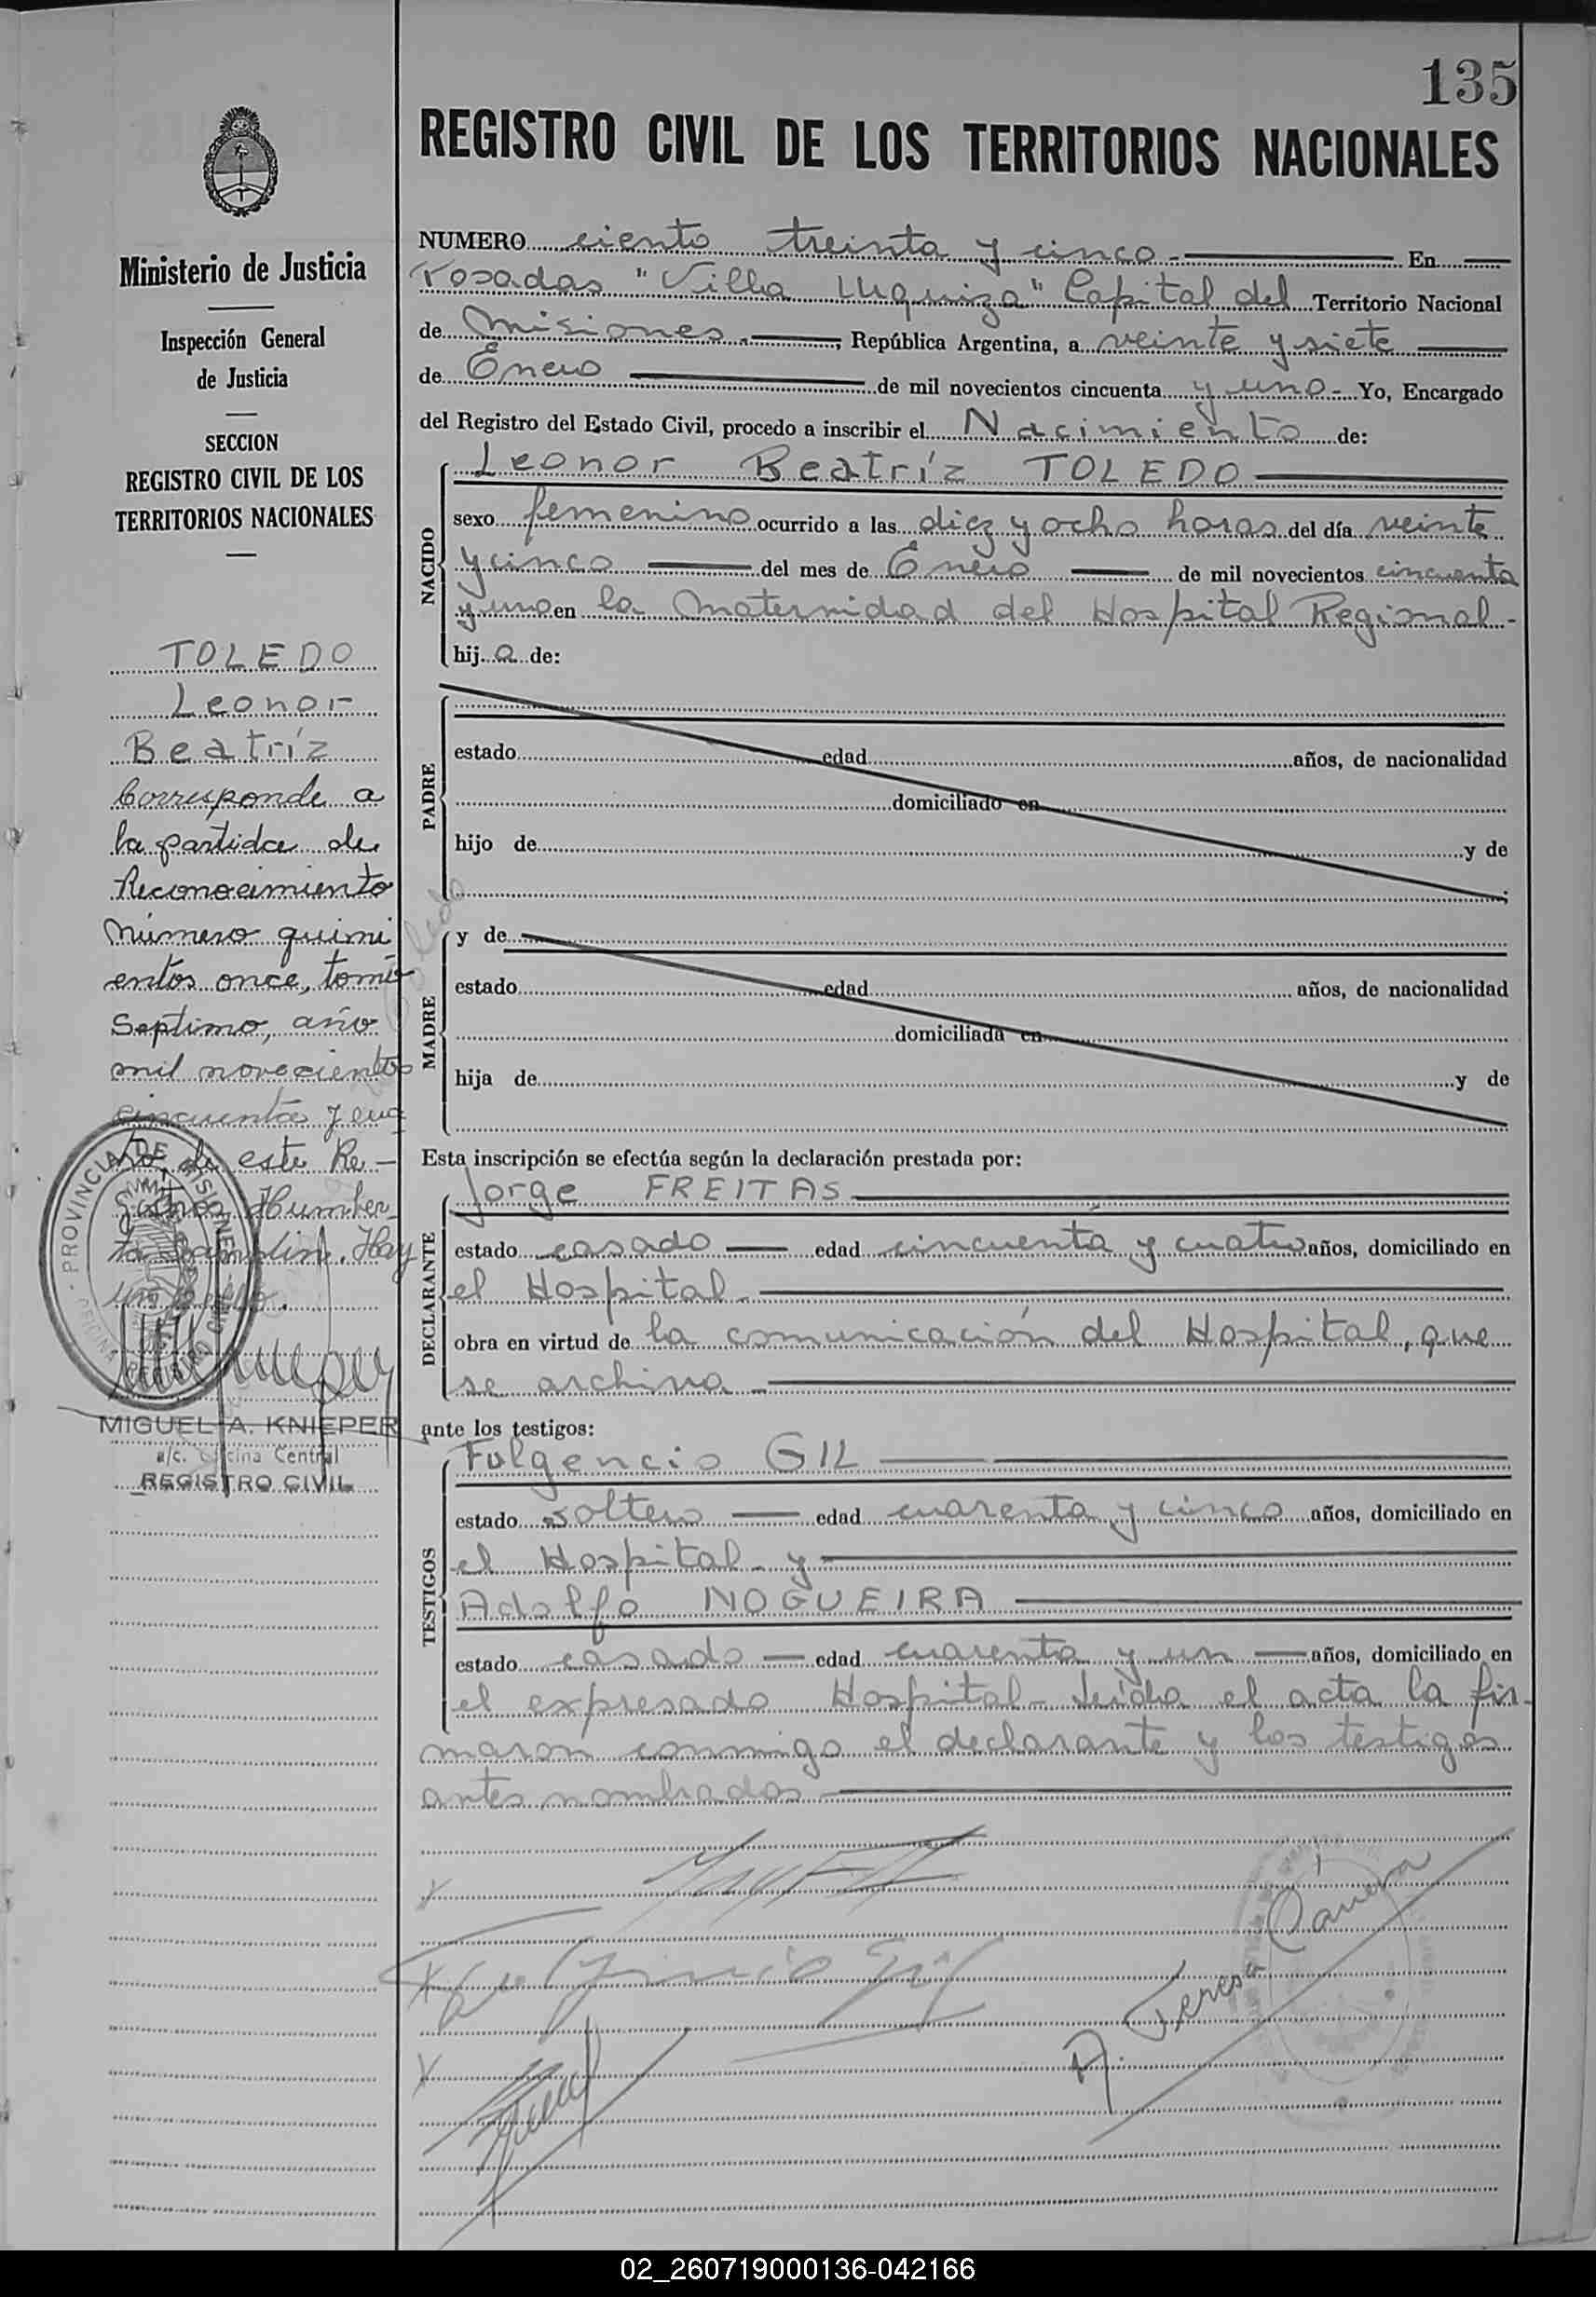 135
REGISTRO CIVIL DE LOS TERRITORIOS NACIONALES
Ministerio de Justicia
Inspección General
de Justicia
SECCION
REGISTRO CIVIL DE LOS
TERRITORIOS NACIONALES
TOLEDO
Leonor
Beatríz
Corresponde a
la partida de
Reconocimiento
Número quini
entos once, tomo
Septimo, año
mil novecientos
cincuenta y cua
tro, de este Re-
Humber
Hay
un sello.
PROVINCIA DE MISIONES
MIGUEL A. KNIEPER
a/c. Oficina Central
REGISTRO CIVIL
NUMERO ciento treinta y cinco.- En
Posadas "Villa Urquiza" Capital del Territorio Nacional
de Misiones.-, República Argentina, a veinte y siete
de Enero de mil novecientos cincuenta y uno.- Yo, Encargado
del Registro del Estado Civil, procedo a inscribir el Nacimiento de:
NACIDO
Leonor Beatríz TOLEDO
sexo femenino ocurrido a las diez y ocho horas del día veinte
y cinco del mes de Enero de mil novecientos cincuenta
y uno en la Maternidad del Hospital Regional.-
hij a de:
PADRE
estado edad años, de nacionalidad
domiciliado en
hijo de y de
MADRE
y de
estado edad años, de nacionalidad
domiciliada en
hija de y de
Esta inscripción se efectúa según la declaración prestada por:
DECLARANTE
Jorge FREITAS
estado casado edad cincuenta y cuatro años, domiciliado en
el Hospital.-
obra en virtud de la comunicación del Hospital, que
se archiva.-
ante los testigos:
TESTIGOS
Fulgencio GIL
estado soltero edad cuarenta y cinco años, domiciliado en
el Hospital.- y
Adolfo NOGUEIRA
estado casado edad cuarenta y un años, domiciliado en
el expresado Hospital.- Leída el acta la fir-
maron conmigo el declarante y los testigos
antes nombrados
Fulgencio Gil
A. Teresa
02_260719000136-042166